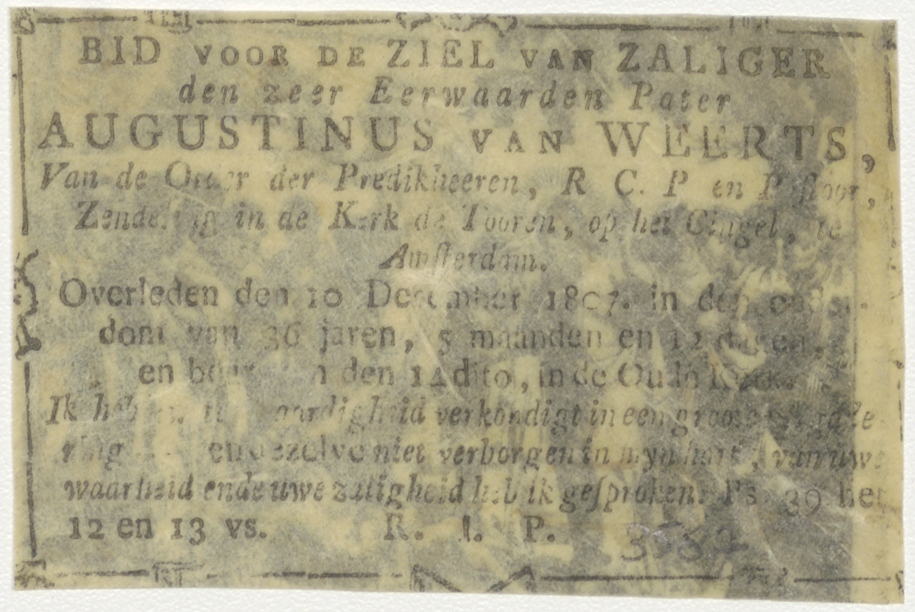 BID VOOR DE ZIEL VAN ZALIGER
den zeer Eerwaarden Pater
AUGUSTINUS VAN WEERTS,
Van de Order der Predikheeren, R C. P en Pastoor,
Zendeling in de Kerk de Tooren, op het Cingel, te
Amsterdam.
Overleden den 10 December 1807. in den ouder-
dom van 36 jaren, 5 maanden en 12 dagen,
en den 14 dito, in de Oude Kerk.
Ik heb uwe rechtvaardigheid verkondigt in een groote
ende dezelve niet verborgen in myn hart, van uwe
waarheid ende uwe zaligheid heb ik geſproken. Ps. 39 het
12 en 13 vs. R. I. P.